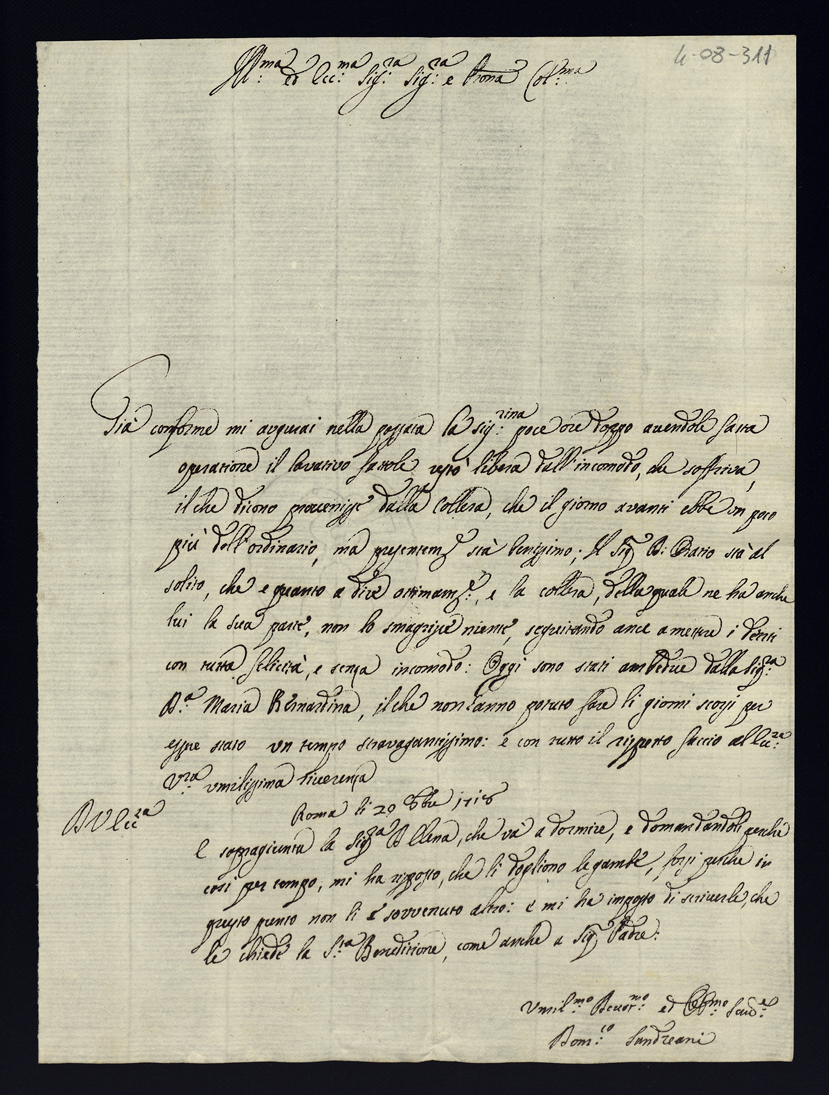 4-08-311
Ill:ma ed Ecc:ma Sig:ra Sig:ra e Prona Col:ma
Già conforme mi augurai nella passata la Sig:rina poce ore doppo avendole fatta
operatione il lavativo fattole restò libera dall'incomodo, che soffriva,
il che dicono provenisse dalla Collera, che il giorno avanti ebbe un poco
più dell'ordinario, ma presentem.e stà benissimo; Il Sig.r D: Oratio stà al
solito, che e quanto a dire ottimam.e, e la collera, della quale ne ha anche
lui la sua parte, non lo smagrisce niente, seguitando anc a mettre i denti
con tutta felicità, e senza incomodo: Oggi sono stati ambedue dalla Sig:ra
D:a Maria Bernardina, il che non hanno potuto fare li giorni scorsi per
essre stato un tempo stravagantissimo: e con tutto il rispetto faccio all'Ecc:za
V:ra umilissima riverenza
D V Ecc:za
Roma li 29 8bre 1718
E sopragiunta la Sig:ra D Elena, che và a dormire, e domandandoli perche
così per tempo, mi ha risposto, che li dogliono le gambe, forsi perche in
questo punto non li è sovvenuto altro: e mi ha imposto di scriverle, che
le chiede la S:ta Beneditione, come anche a Sig.r Padre:
Umil:mo Devot:mo ed Obb:mo Serv:e
Dom:co Landreani